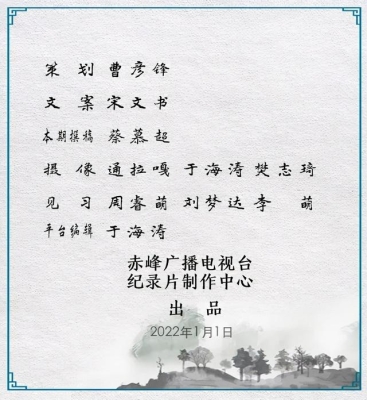 策　划 曹彦锋
文　案 宋文书
本期撰稿 蔡慕超
摄　像 通拉嘎 于海涛 樊志琦
见　习 周睿萌 刘梦达 李　萌
平台编辑 于海涛
赤峰广播电视台
纪录片制作中心
出　品
2022年1月1日